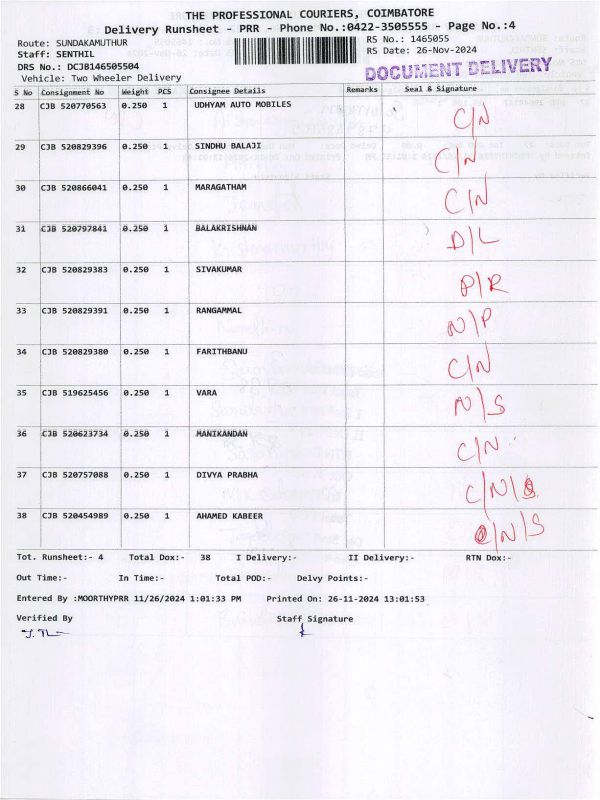 THE PROFESSIONAL COURIERS, COIMBATORE
Delivery Runsheet - PRR - Phone No.:0422-3505555 - Page No.:4
Route: SUNDAKAMUTHUR RS No.: 1465055
Staff: SENTHIL RS Date: 26-Nov-2024
DRS No.: DCJB146505504
DOCUMENT DELIVERY
Vehicle: Two Wheeler Delivery
S No Consignment No Weight PCS Consignee Details Remarks Seal & Signature
28 CJB 520770563 0.250 1 UDHYAM AUTO MOBILES C/N
29 CJB 520829396 0.250 1 SINDHU BALAJI C/N
30 CJB 520866041 0.250 1 MARAGATHAM C/N
31 CJB 520797841 0.250 1 BALAKRISHNAN D/L
32 CJB 520829383 0.250 1 SIVAKUMAR P/R
33 CJB 520829391 0.250 1 RANGAMMAL N/P
34 CJB 520829380 0.250 1 FARITHBANU C/N
35 CJB 519625456 0.250 1 VARA N/S
36 CJB 520623734 0.250 1 MANIKANDAN C/N
37 CJB 520757088 0.250 1 DIVYA PRABHA C/N/S
38 CJB 520454989 0.250 1 AHAMED KABEER C/N/S
Tot. Runsheet:- 4 Total Dox:- 38 I Delivery:- II Delivery:- RTN Dox:-
Out Time:- In Time:- Total POD:- Delvy Points:-
Entered By :MOORTHYPRR 11/26/2024 1:01:33 PM Printed On: 26-11-2024 13:01:53
Verified By Staff Signature